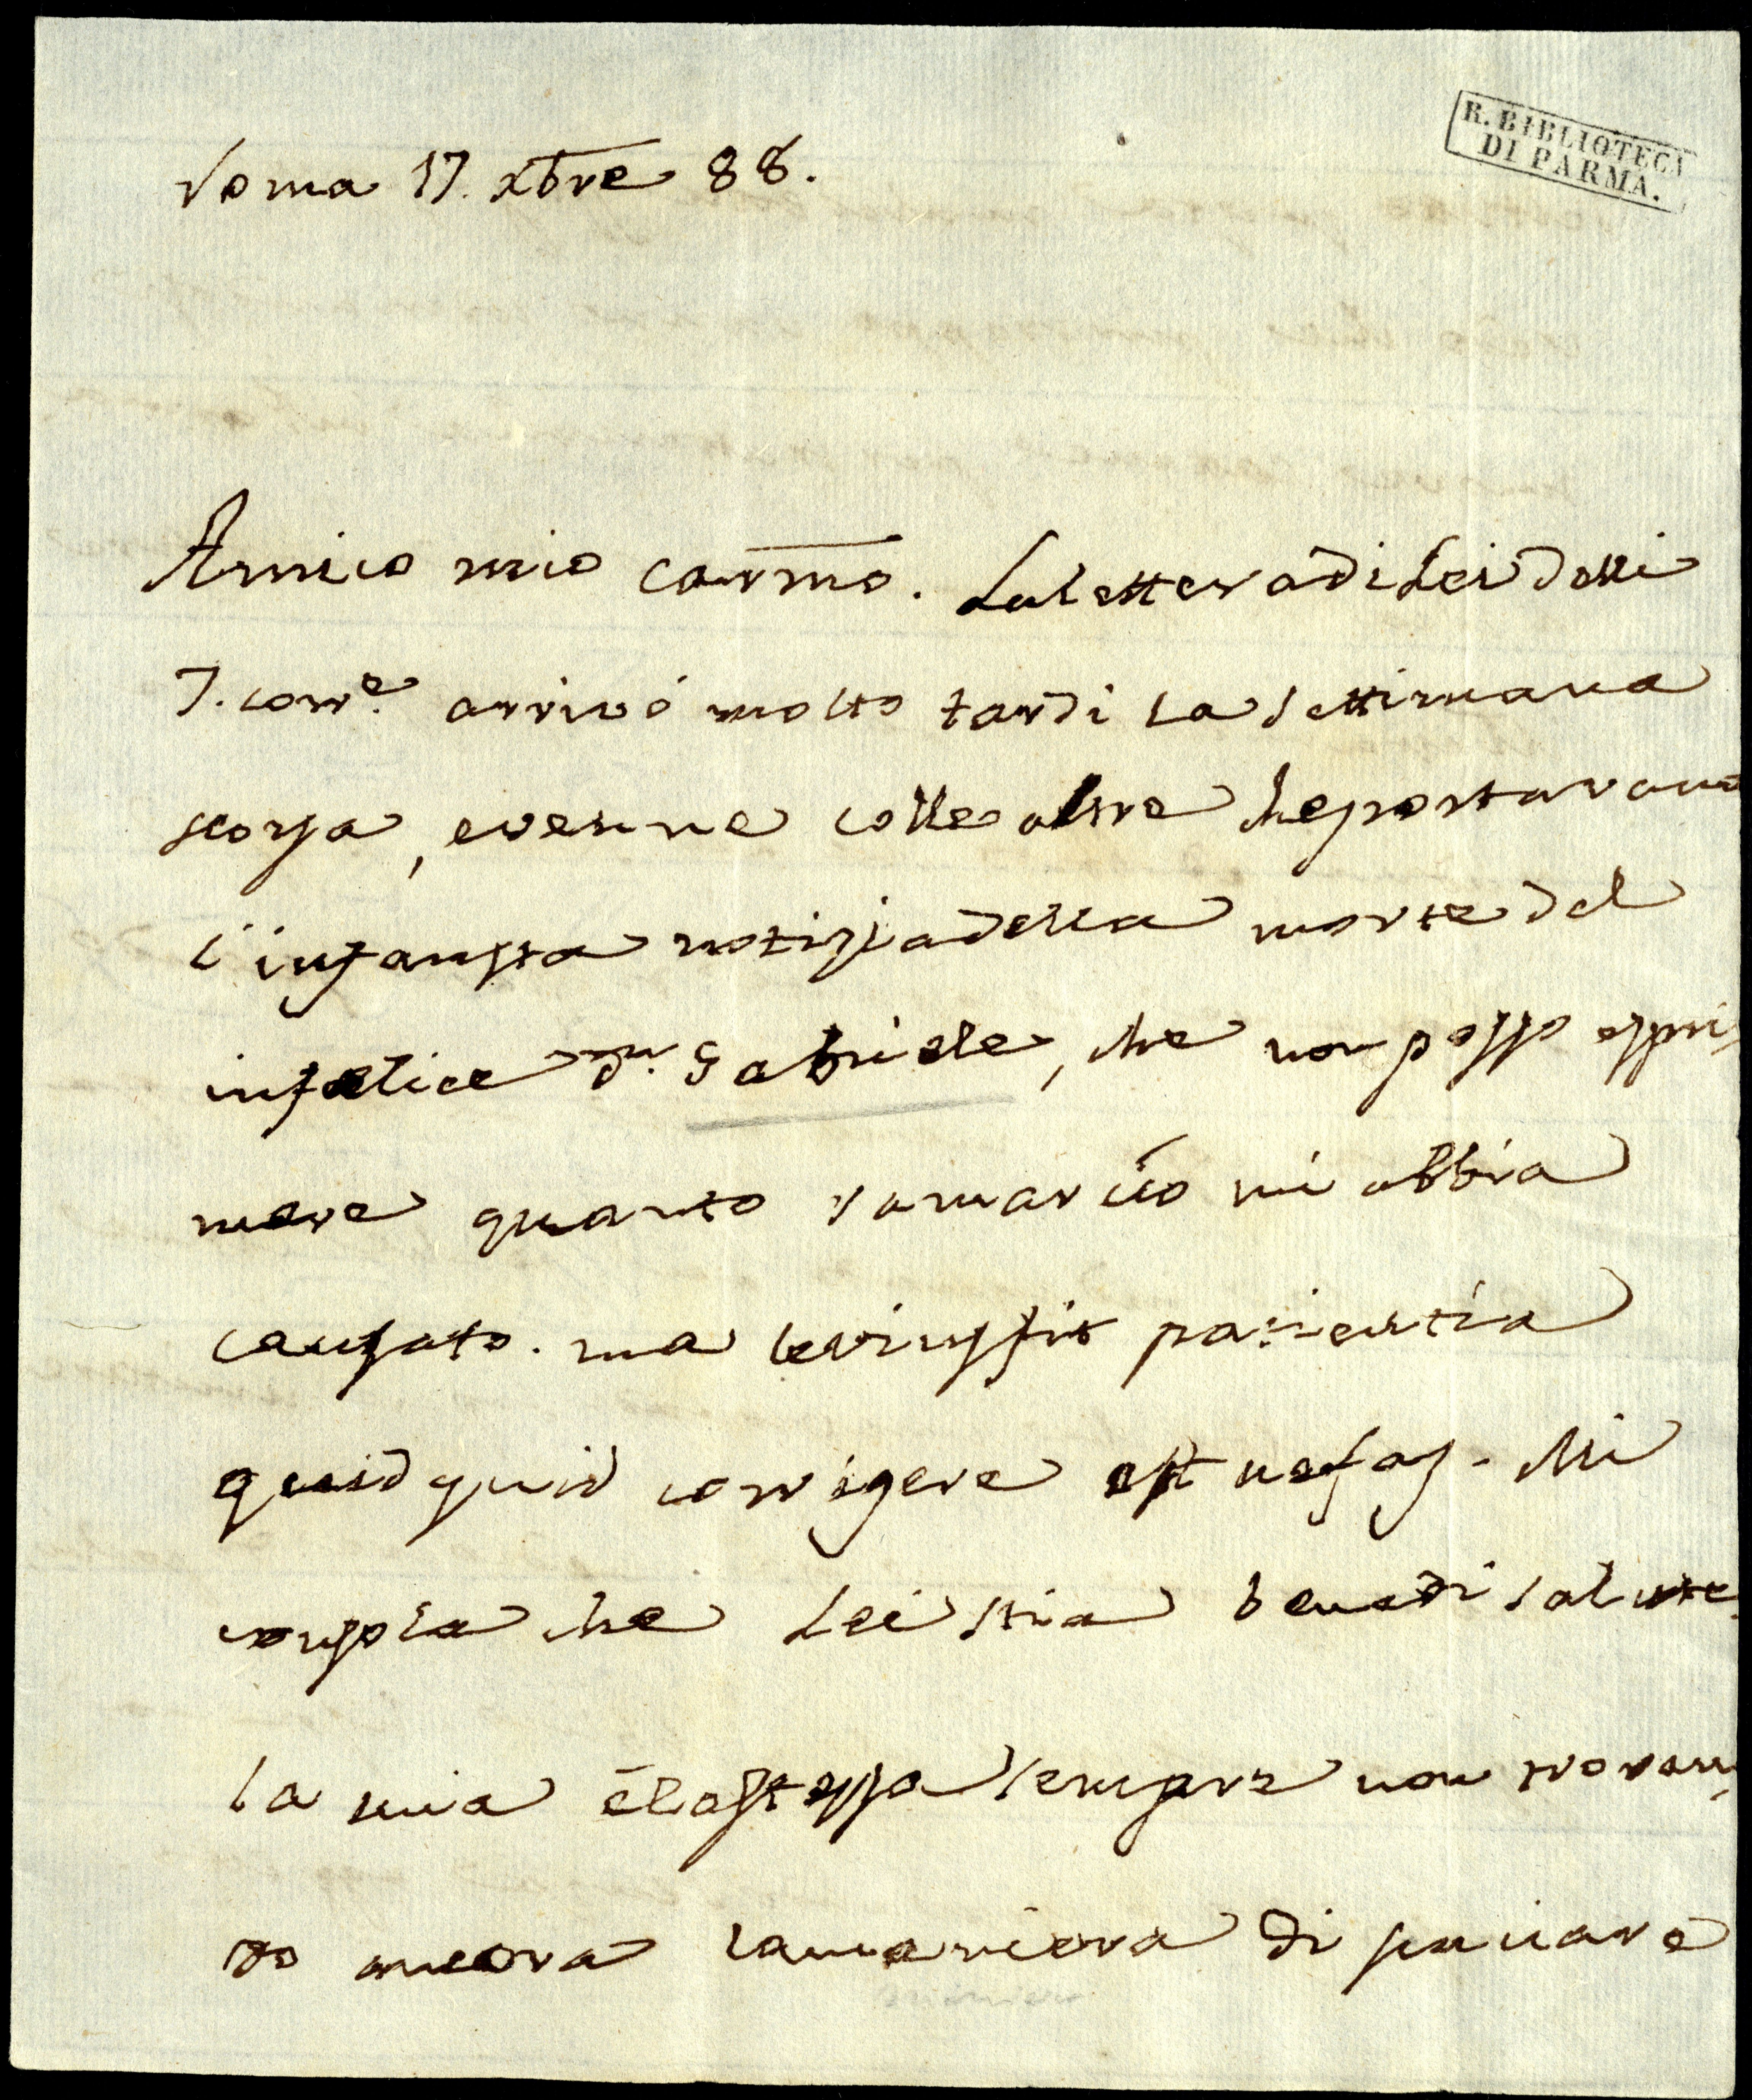 R. BIBLIOTECA
DI PARMA.
Roma 17. Xbre 88.
Amico mio carmo. La lettera di Lei delli
7. corre. arrivò molto tardi la settimana
scorsa, e venne colle altre che portavano
l'infausta notizia della morte del
infelice Dn. Gabriele, che non posso espri,
mere quanto ramarico mi abbia
causato. ma levius fit patientia
quidquid corrigere est nefas. Mi
consola che Lei stia bene di salute
la mia è la stessa sempre non trovan,
do ancora la maniera di